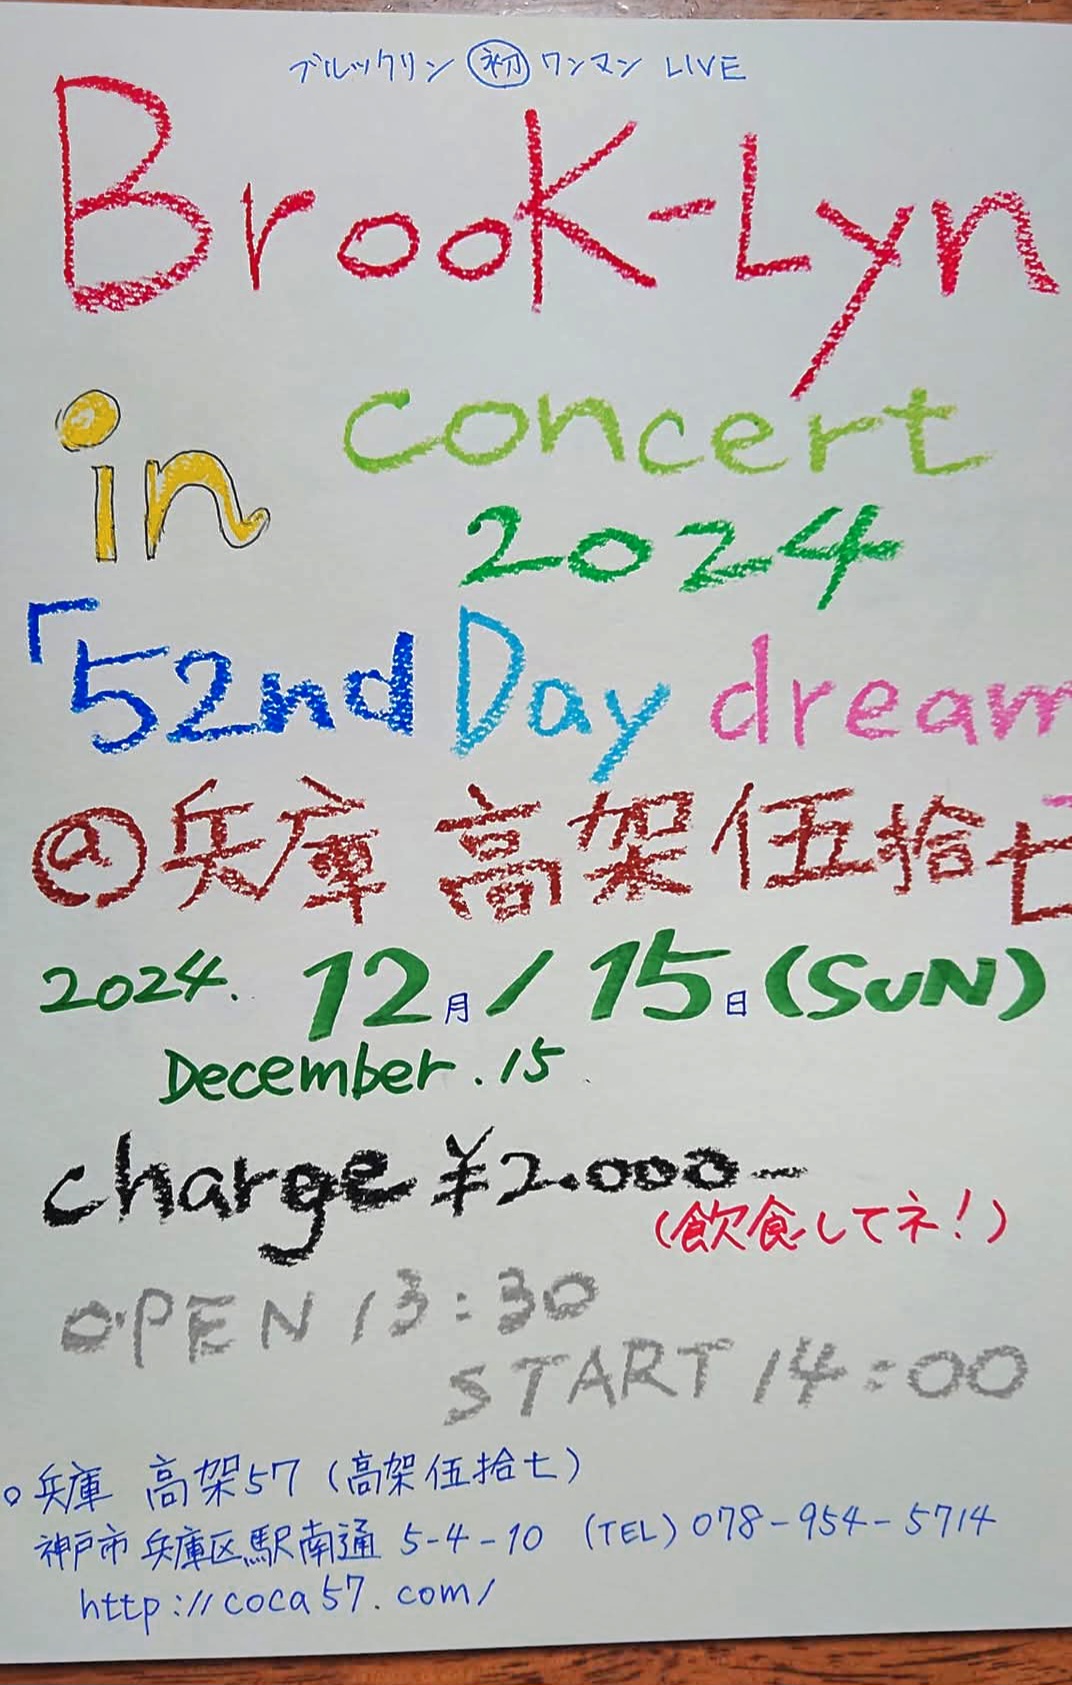 ブルックリン 初 ワンマン LIVE
BrooK-Lyn
in concert
2024
「52nd Day dream
@兵庫 高架伍拾七
2024. 12月/15日(SUN)
December.15
charge ¥2.000-
(飲食してネ!)
OPEN 13:30
START 14:00
○兵庫 高架57(高架伍拾七)
神戸市兵庫区駅南通 5-4-10 (TEL)078-954-5714
http://coca57.com/